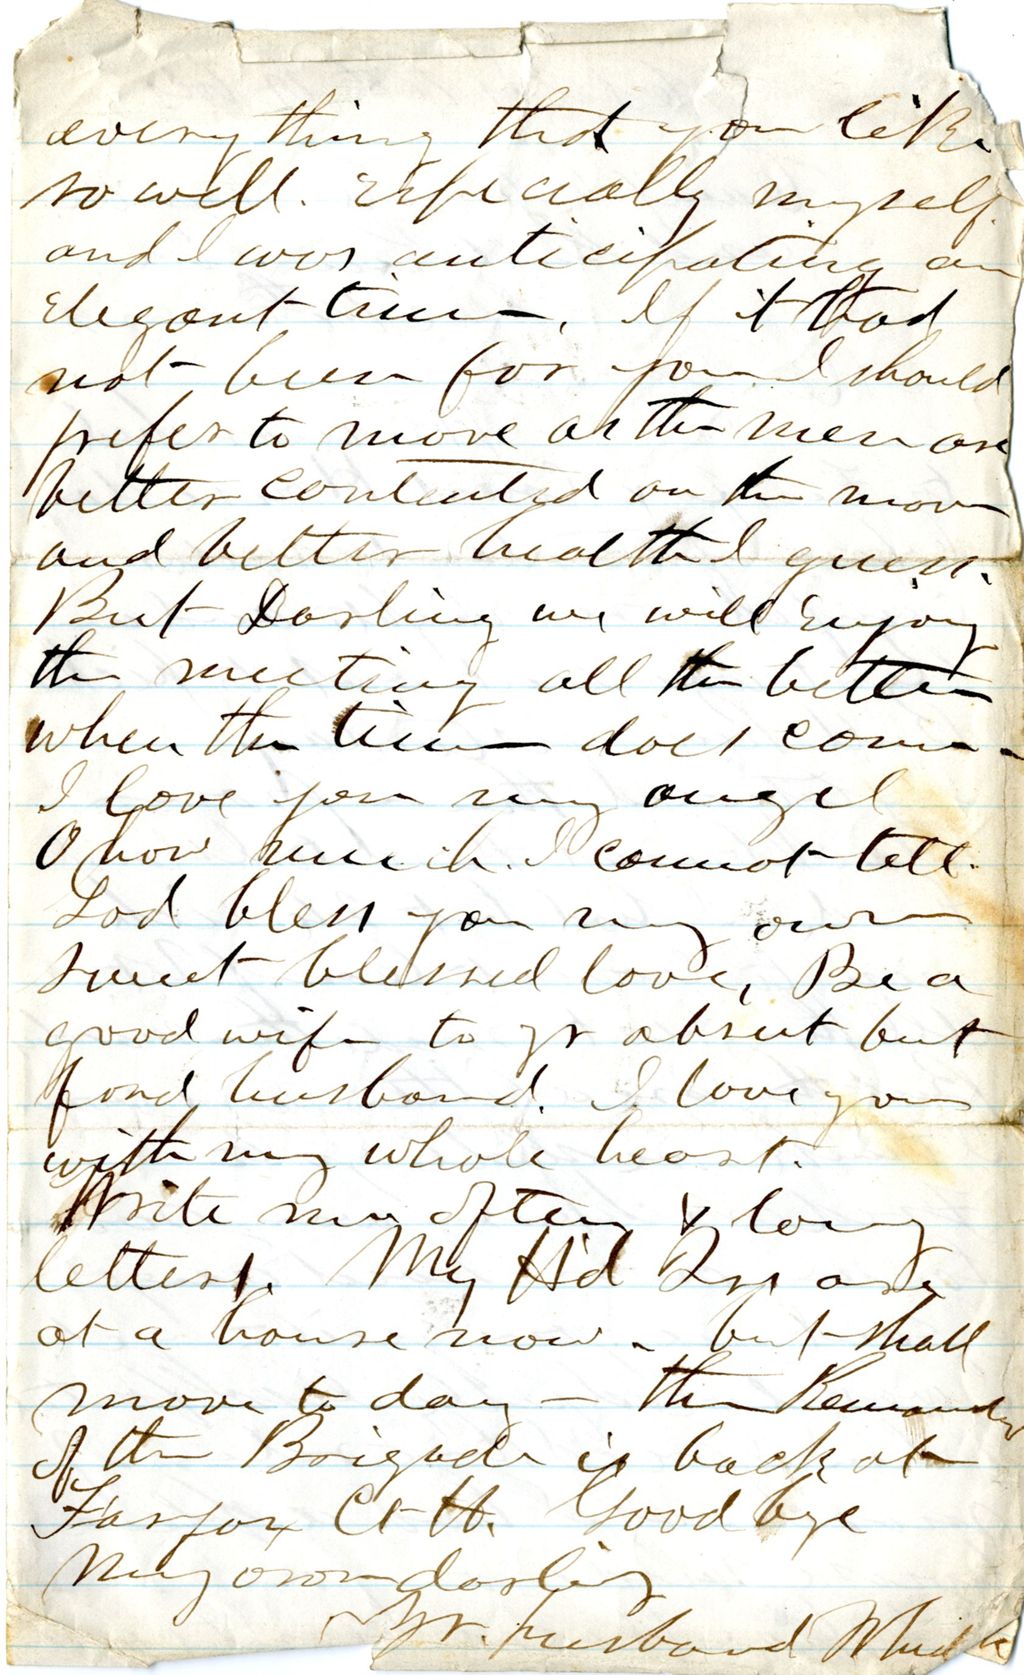 everything that you like
so well. Especially myself.
and I was anticipating an
elegant time. If it had
not been for you I should
prefer to move as the men are
better contented on the move
and better health I guess.
But Darling we will enjoy
the meeting all the better
when the time does come.
I love you my angel
O how much I cannot tell.
God bless you my own
sweet blessed love, Be a
good wife to yr absent but
fond husband. I love you
with my whole heart.
Write me often & long
letters. My Hd Qrs are
at a house now - but shall
move to day - the Remainder
of the Brigade is back at
Fairfax Ct H. Good bye
my own darling
Yr. husband